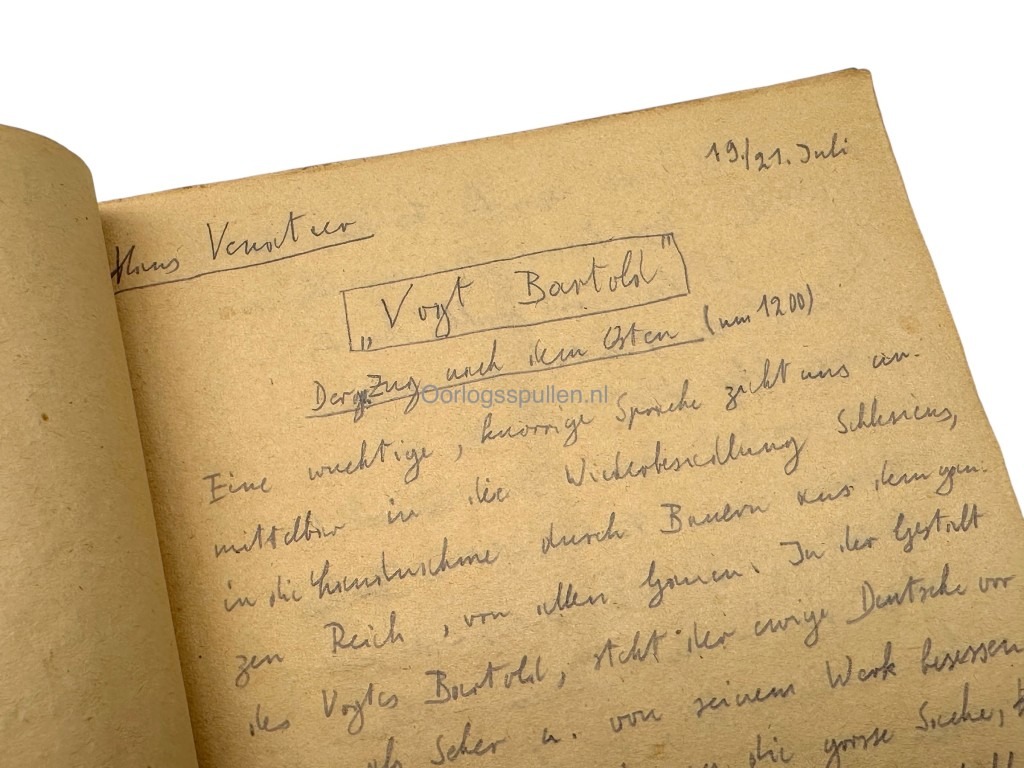 19./21. Juli
Hans Venatier
„Vogt Bartold"
Der Zug nach dem Osten (um 1200)
Oorlogsspullen.nl
Eine wuchtige, knorrige Sprache zieht uns un-
mittelbar in die Wiederbesiedlung Schlesiens,
in die Landnahme durch Bauern aus dem gan-
zen Reich, von allen Gauen. In der Gestalt
des Vogtes Bartold, steht der ewige Deutsche vor
als Seher u. von seinem Werk besessen
die grosse Sache,